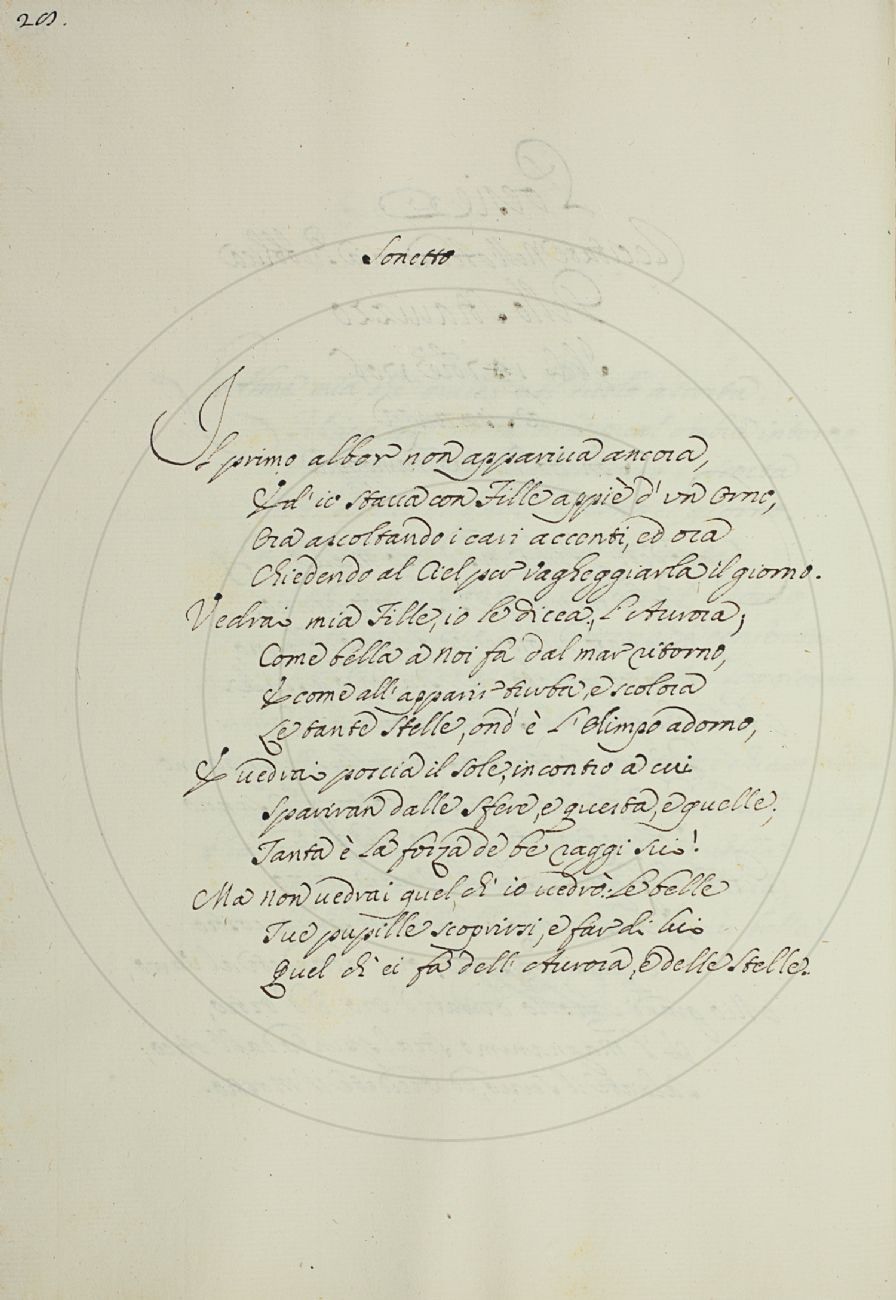 201.
Sonetto
Il primo albor non appariva ancora,
Ed io stava con Fille appiè d'un Orno,
Ora ascoltando i cari accenti, ed ora
Chiedendo al Ciel per vagheggiarla il giorno.
Vedrai mia Fille, io le dicea, l'Aurora,
Come bella a noi fa dal mar ritorno,
E come all'apparir turba, e scolora
Le tante Stelle, ond'è l'Olimpo adorno,
E vedrai poscia il Sole, incontro a cui
Spariran dalle Sfere, e questa, e quelle;
Tanta è la forza de be raggi sui!
Ma non vedrai quel, ch'io vedrò: Le belle
Tue pupille scoprirsi, e far di lui
Quel ch'ei fa dell'Aurora, e delle Stelle.